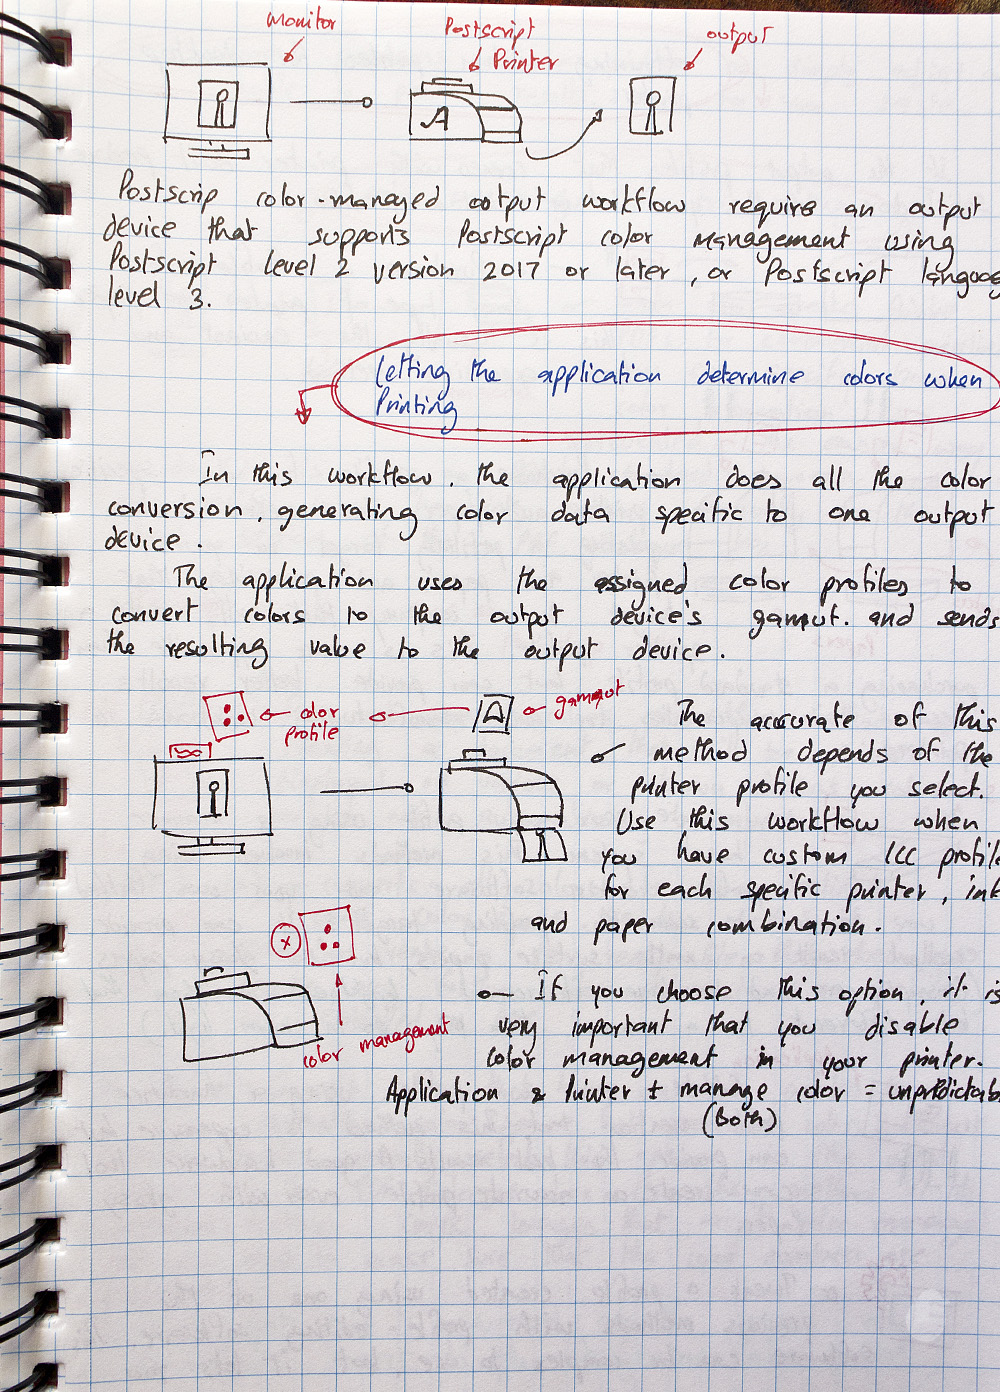 monitor
Postscript
Printer
output
A
Postscrip color-managed output workflow require an output
device that supports Postscript color management using
Postscript level 2 version 2017 or later, or Postscript
level 3.
Letting the application determine colors when
Printing
In this workflow, the application does all the color
conversion, generating color data specific to one output
device.
The application uses the assigned color profiles to
convert colors to the output device's gamut. and sends
the resulting value to the output device.
color
profile
gammut
The accurate of this
method depends of the
printer profile you select.
Use this workflow when
you have custom ICC profile
for each specific printer, ink
and paper combination.
x
color management
If you choose this option, it is
very important that you disable
color management in your printer.
Application & Printer + manage color =
(Both)